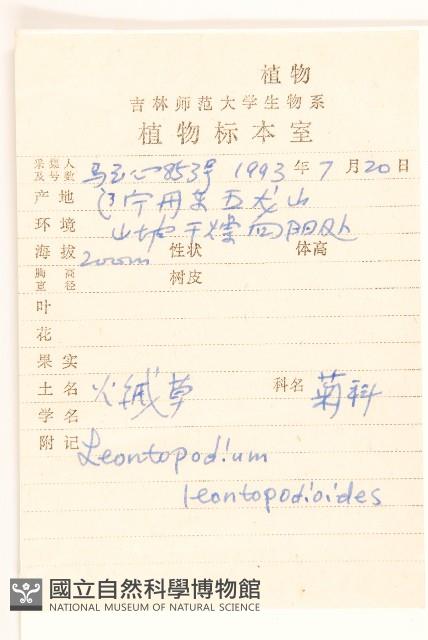 植物
吉林师范大学生物系
植物标本室
采集人及号数 马玉心 853号 1993年7月20日
产地 辽宁丹东五龙山
环境 山坡干燥向阳处
海拔 200m 性状 体高
胸高直径 树皮
叶
花
果实
土名 火绒草 科名 菊科
学名
附记 Leontopodium
leontopodioides
國立自然科學博物館
NATIONAL MUSEUM OF NATURAL SCIENCE